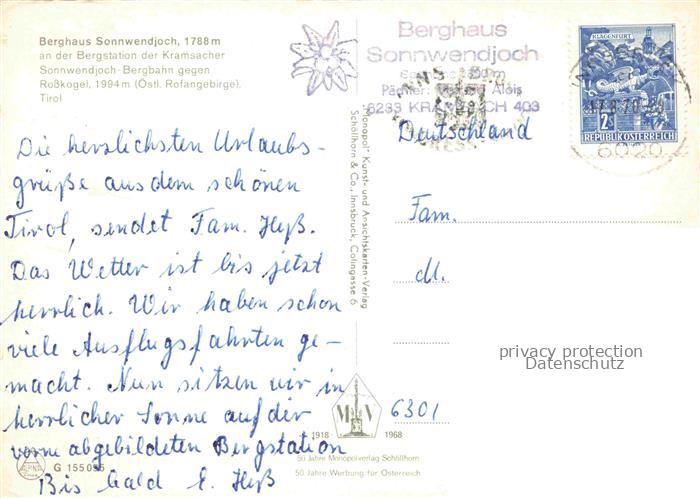 Berghaus Sonnwendjoch, 1788 m
an der Bergstation der Kramsacher
Sonnwendjoch-Bergbahn gegen
Roßkogel, 1994 m (Östl. Rofangebirge),
Tirol
Die herzlichsten Urlaubs-
grüße aus dem schönen
Tirol, sendet Fam. Heyß.
Das Wetter ist bis jetzt
herrlich. Wir haben schon
viele Ausflugsfahrten ge-
macht. Nun sitzen wir in
herrlicher Sonne auf der
vorne abgebildeten Bergstation
Bis bald E. Heyß
ALPINA
G 155 095
Monopol-, Kunst- und Ansichtskarten-Verlag
Schöllhorn & Co., Innsbruck, Colingasse 6
M V
1918 1968
50 Jahre Monopolverlag Schöllhorn
50 Jahre Werbung für Österreich
Berghaus
Sonnwendjoch
Pächter: Alois
6233 KRAMSACH 403
KLAGENFURT
2S
REPUBLIK ÖSTERREICH
6020
Deutschland
Fam.
M.
privacy protection
Datenschutz
6301